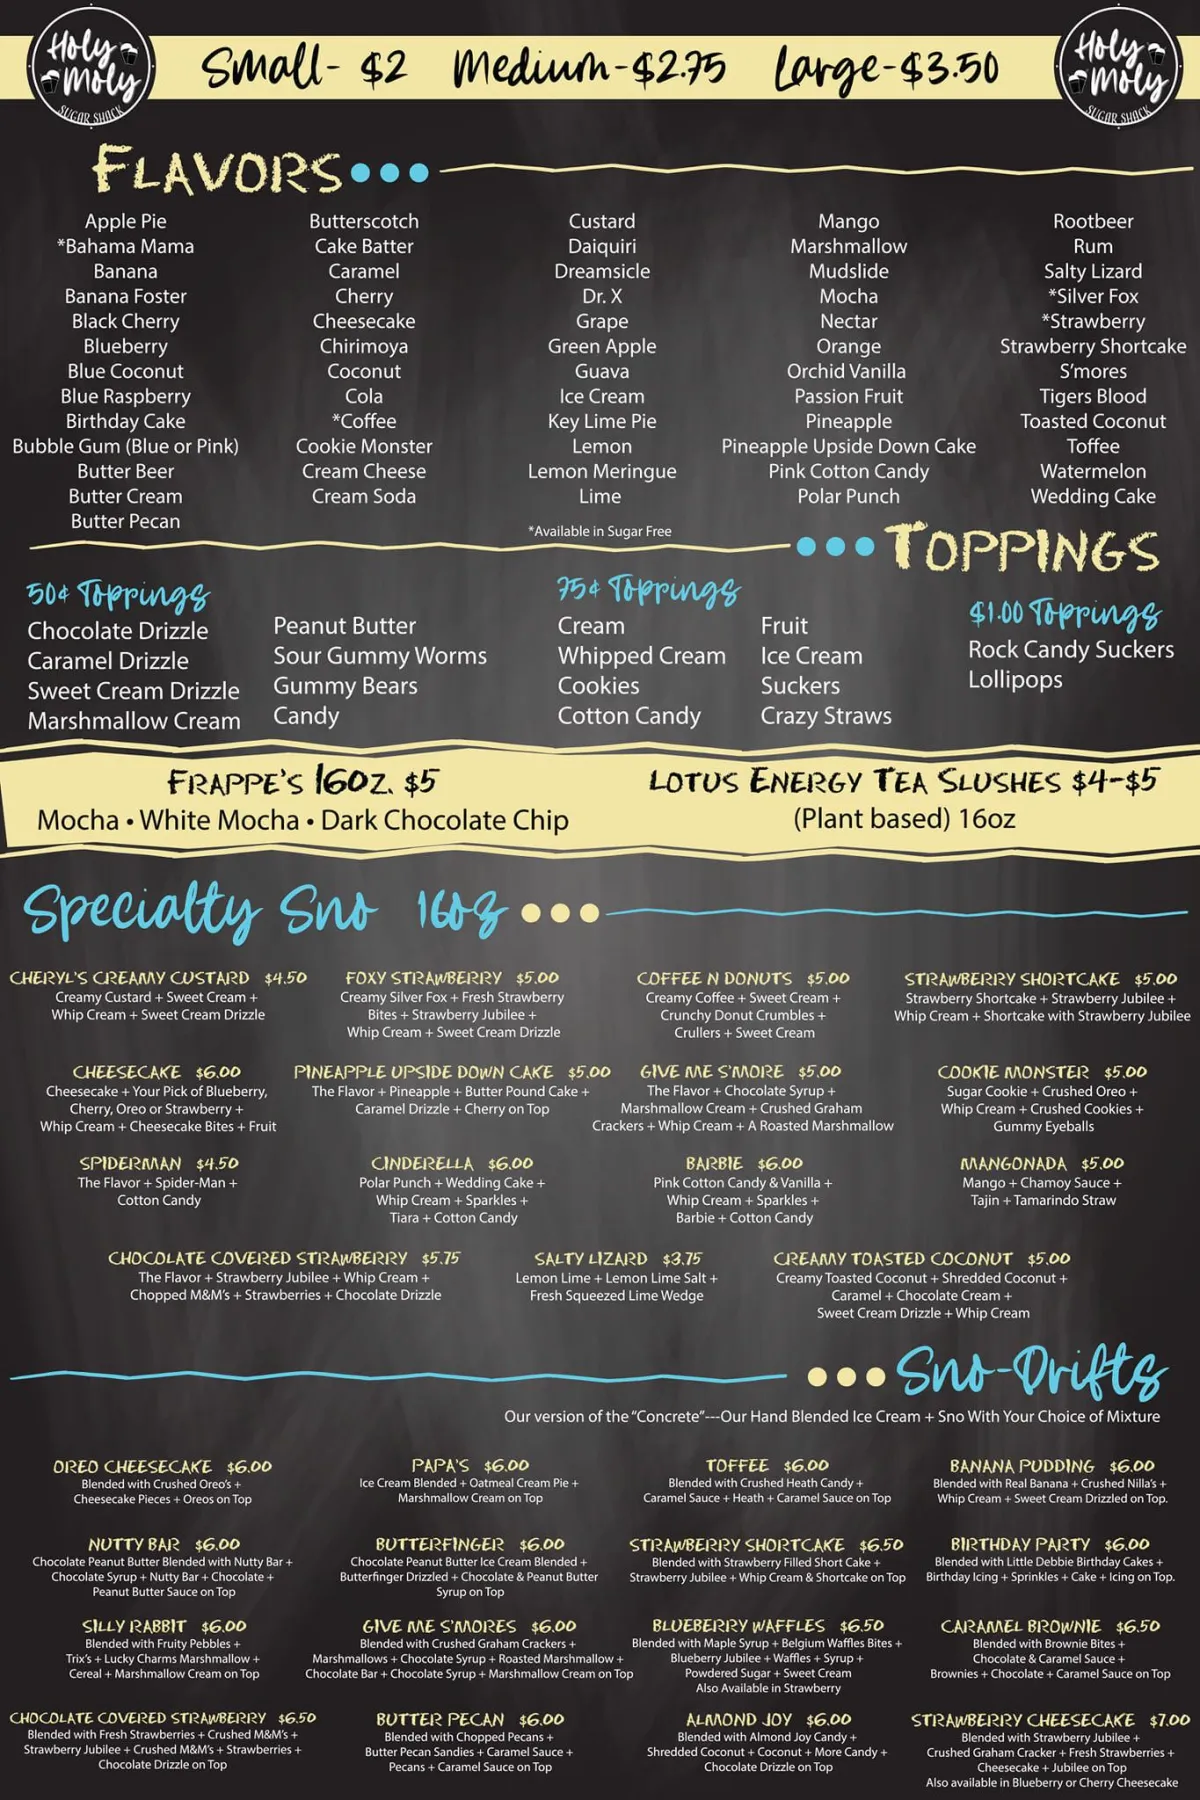 Holy Moly
SUGAR SHACK
Small- $2 Medium-$2.75 Large-$3.50
Holy Moly
SUGAR SHACK
FLAVORS
Apple Pie
*Bahama Mama
Banana
Banana Foster
Black Cherry
Blueberry
Blue Coconut
Blue Raspberry
Birthday Cake
Bubble Gum (Blue or Pink)
Butter Beer
Butter Cream
Butter Pecan
Butterscotch
Cake Batter
Caramel
Cherry
Cheesecake
Chirimoya
Coconut
Cola
*Coffee
Cookie Monster
Cream Cheese
Cream Soda
Custard
Daiquiri
Dreamsicle
Dr. X
Grape
Green Apple
Guava
Ice Cream
Key Lime Pie
Lemon
Lemon Meringue
Lime
Mango
Marshmallow
Mudslide
Mocha
Nectar
Orange
Orchid Vanilla
Passion Fruit
Pineapple
Pineapple Upside Down Cake
Pink Cotton Candy
Polar Punch
Rootbeer
Rum
Salty Lizard
*Silver Fox
*Strawberry
Strawberry Shortcake
S'mores
Tigers Blood
Toasted Coconut
Toffee
Watermelon
Wedding Cake
*Available in Sugar Free
TOPPINGS
50¢ Toppings
Chocolate Drizzle
Caramel Drizzle
Sweet Cream Drizzle
Marshmallow Cream
Peanut Butter
Sour Gummy Worms
Gummy Bears
Candy
75¢ Toppings
Cream
Whipped Cream
Cookies
Cotton Candy
Fruit
Ice Cream
Suckers
Crazy Straws
$1.00 Toppings
Rock Candy Suckers
Lollipops
FRAPPE'S 16OZ. $5
Mocha • White Mocha • Dark Chocolate Chip
LOTUS ENERGY TEA SLUSHES $4-$5
(Plant based) 16oz
Specialty Sno 16oz
CHERYL'S CREAMY CUSTARD $4.50
Creamy Custard + Sweet Cream +
Whip Cream + Sweet Cream Drizzle
FOXY STRAWBERRY $5.00
Creamy Silver Fox + Fresh Strawberry
Bites + Strawberry Jubilee +
Whip Cream + Sweet Cream Drizzle
COFFEE N DONUTS $5.00
Creamy Coffee + Sweet Cream +
Crunchy Donut Crumbles +
Crullers + Sweet Cream
STRAWBERRY SHORTCAKE $5.00
Strawberry Shortcake + Strawberry Jubilee +
Whip Cream + Shortcake with Strawberry Jubilee
CHEESECAKE $6.00
Cheesecake + Your Pick of Blueberry,
Cherry, Oreo or Strawberry +
Whip Cream + Cheesecake Bites + Fruit
PINEAPPLE UPSIDE DOWN CAKE $5.00
The Flavor + Pineapple + Butter Pound Cake +
Caramel Drizzle + Cherry on Top
GIVE ME S'MORE $5.00
The Flavor + Chocolate Syrup +
Marshmallow Cream + Crushed Graham
Crackers + Whip Cream + A Roasted Marshmallow
COOKIE MONSTER $5.00
Sugar Cookie + Crushed Oreo +
Whip Cream + Crushed Cookies +
Gummy Eyeballs
SPIDERMAN $4.50
The Flavor + Spider-Man +
Cotton Candy
CINDERELLA $6.00
Polar Punch + Wedding Cake +
Whip Cream + Sparkles +
Tiara + Cotton Candy
BARBIE $6.00
Pink Cotton Candy & Vanilla +
Whip Cream + Sparkles +
Barbie + Cotton Candy
MANGONADA $5.00
Mango + Chamoy Sauce +
Tajin + Tamarindo Straw
CHOCOLATE COVERED STRAWBERRY $5.75
The Flavor + Strawberry Jubilee + Whip Cream +
Chopped M&M's + Strawberries + Chocolate Drizzle
SALTY LIZARD $3.75
Lemon Lime + Lemon Lime Salt +
Fresh Squeezed Lime Wedge
CREAMY TOASTED COCONUT $5.00
Creamy Toasted Coconut + Shredded Coconut +
Caramel + Chocolate Cream +
Sweet Cream Drizzle + Whip Cream
Sno-Drifts
Our version of the "Concrete"---Our Hand Blended Ice Cream + Sno With Your Choice of Mixture
OREO CHEESECAKE $6.00
Blended with Crushed Oreo's +
Cheesecake Pieces + Oreos on Top
PAPA'S $6.00
Ice Cream Blended + Oatmeal Cream Pie +
Marshmallow Cream on Top
TOFFEE $6.00
Blended with Crushed Heath Candy +
Caramel Sauce + Heath + Caramel Sauce on Top
BANANA PUDDING $6.00
Blended with Real Banana + Crushed Nilla's +
Whip Cream + Sweet Cream Drizzled on Top.
NUTTY BAR $6.00
Chocolate Peanut Butter Blended with Nutty Bar +
Chocolate Syrup + Nutty Bar + Chocolate +
Peanut Butter Sauce on Top
BUTTERFINGER $6.00
Chocolate Peanut Butter Ice Cream Blended +
Butterfinger Drizzled + Chocolate & Peanut Butter
Syrup on Top
STRAWBERRY SHORTCAKE $6.50
Blended with Strawberry Filled Short Cake +
Strawberry Jubilee + Whip Cream & Shortcake on Top
BIRTHDAY PARTY $6.00
Blended with Little Debbie Birthday Cakes +
Birthday Icing + Sprinkles + Cake + Icing on Top.
SILLY RABBIT $6.00
Blended with Fruity Pebbles +
Trix's + Lucky Charms Marshmallow +
Cereal + Marshmallow Cream on Top
GIVE ME S'MORES $6.00
Blended with Crushed Graham Crackers +
Marshmallows + Chocolate Syrup + Roasted Marshmallow +
Chocolate Bar + Chocolate Syrup + Marshmallow Cream on Top
BLUEBERRY WAFFLES $6.50
Blended with Maple Syrup + Belgium Waffles Bites +
Blueberry Jubilee + Waffles + Syrup +
Powdered Sugar + Sweet Cream
Also Available in Strawberry
CARAMEL BROWNIE $6.50
Blended with Brownie Bites +
Chocolate & Caramel Sauce +
Brownies + Chocolate + Caramel Sauce on Top
CHOCOLATE COVERED STRAWBERRY $6.50
Blended with Fresh Strawberries + Crushed M&M's +
Strawberry Jubilee + Crushed M&M's + Strawberries +
Chocolate Drizzle on Top
BUTTER PECAN $6.00
Blended with Chopped Pecans +
Butter Pecan Sandies + Caramel Sauce +
Pecans + Caramel Sauce on Top
ALMOND JOY $6.00
Blended with Almond Joy Candy +
Shredded Coconut + Coconut + More Candy +
Chocolate Drizzle on Top
STRAWBERRY CHEESECAKE $7.00
Blended with Strawberry Jubilee +
Crushed Graham Cracker + Fresh Strawberries +
Cheesecake + Jubilee on Top
Also available in Blueberry or Cherry Cheesecake